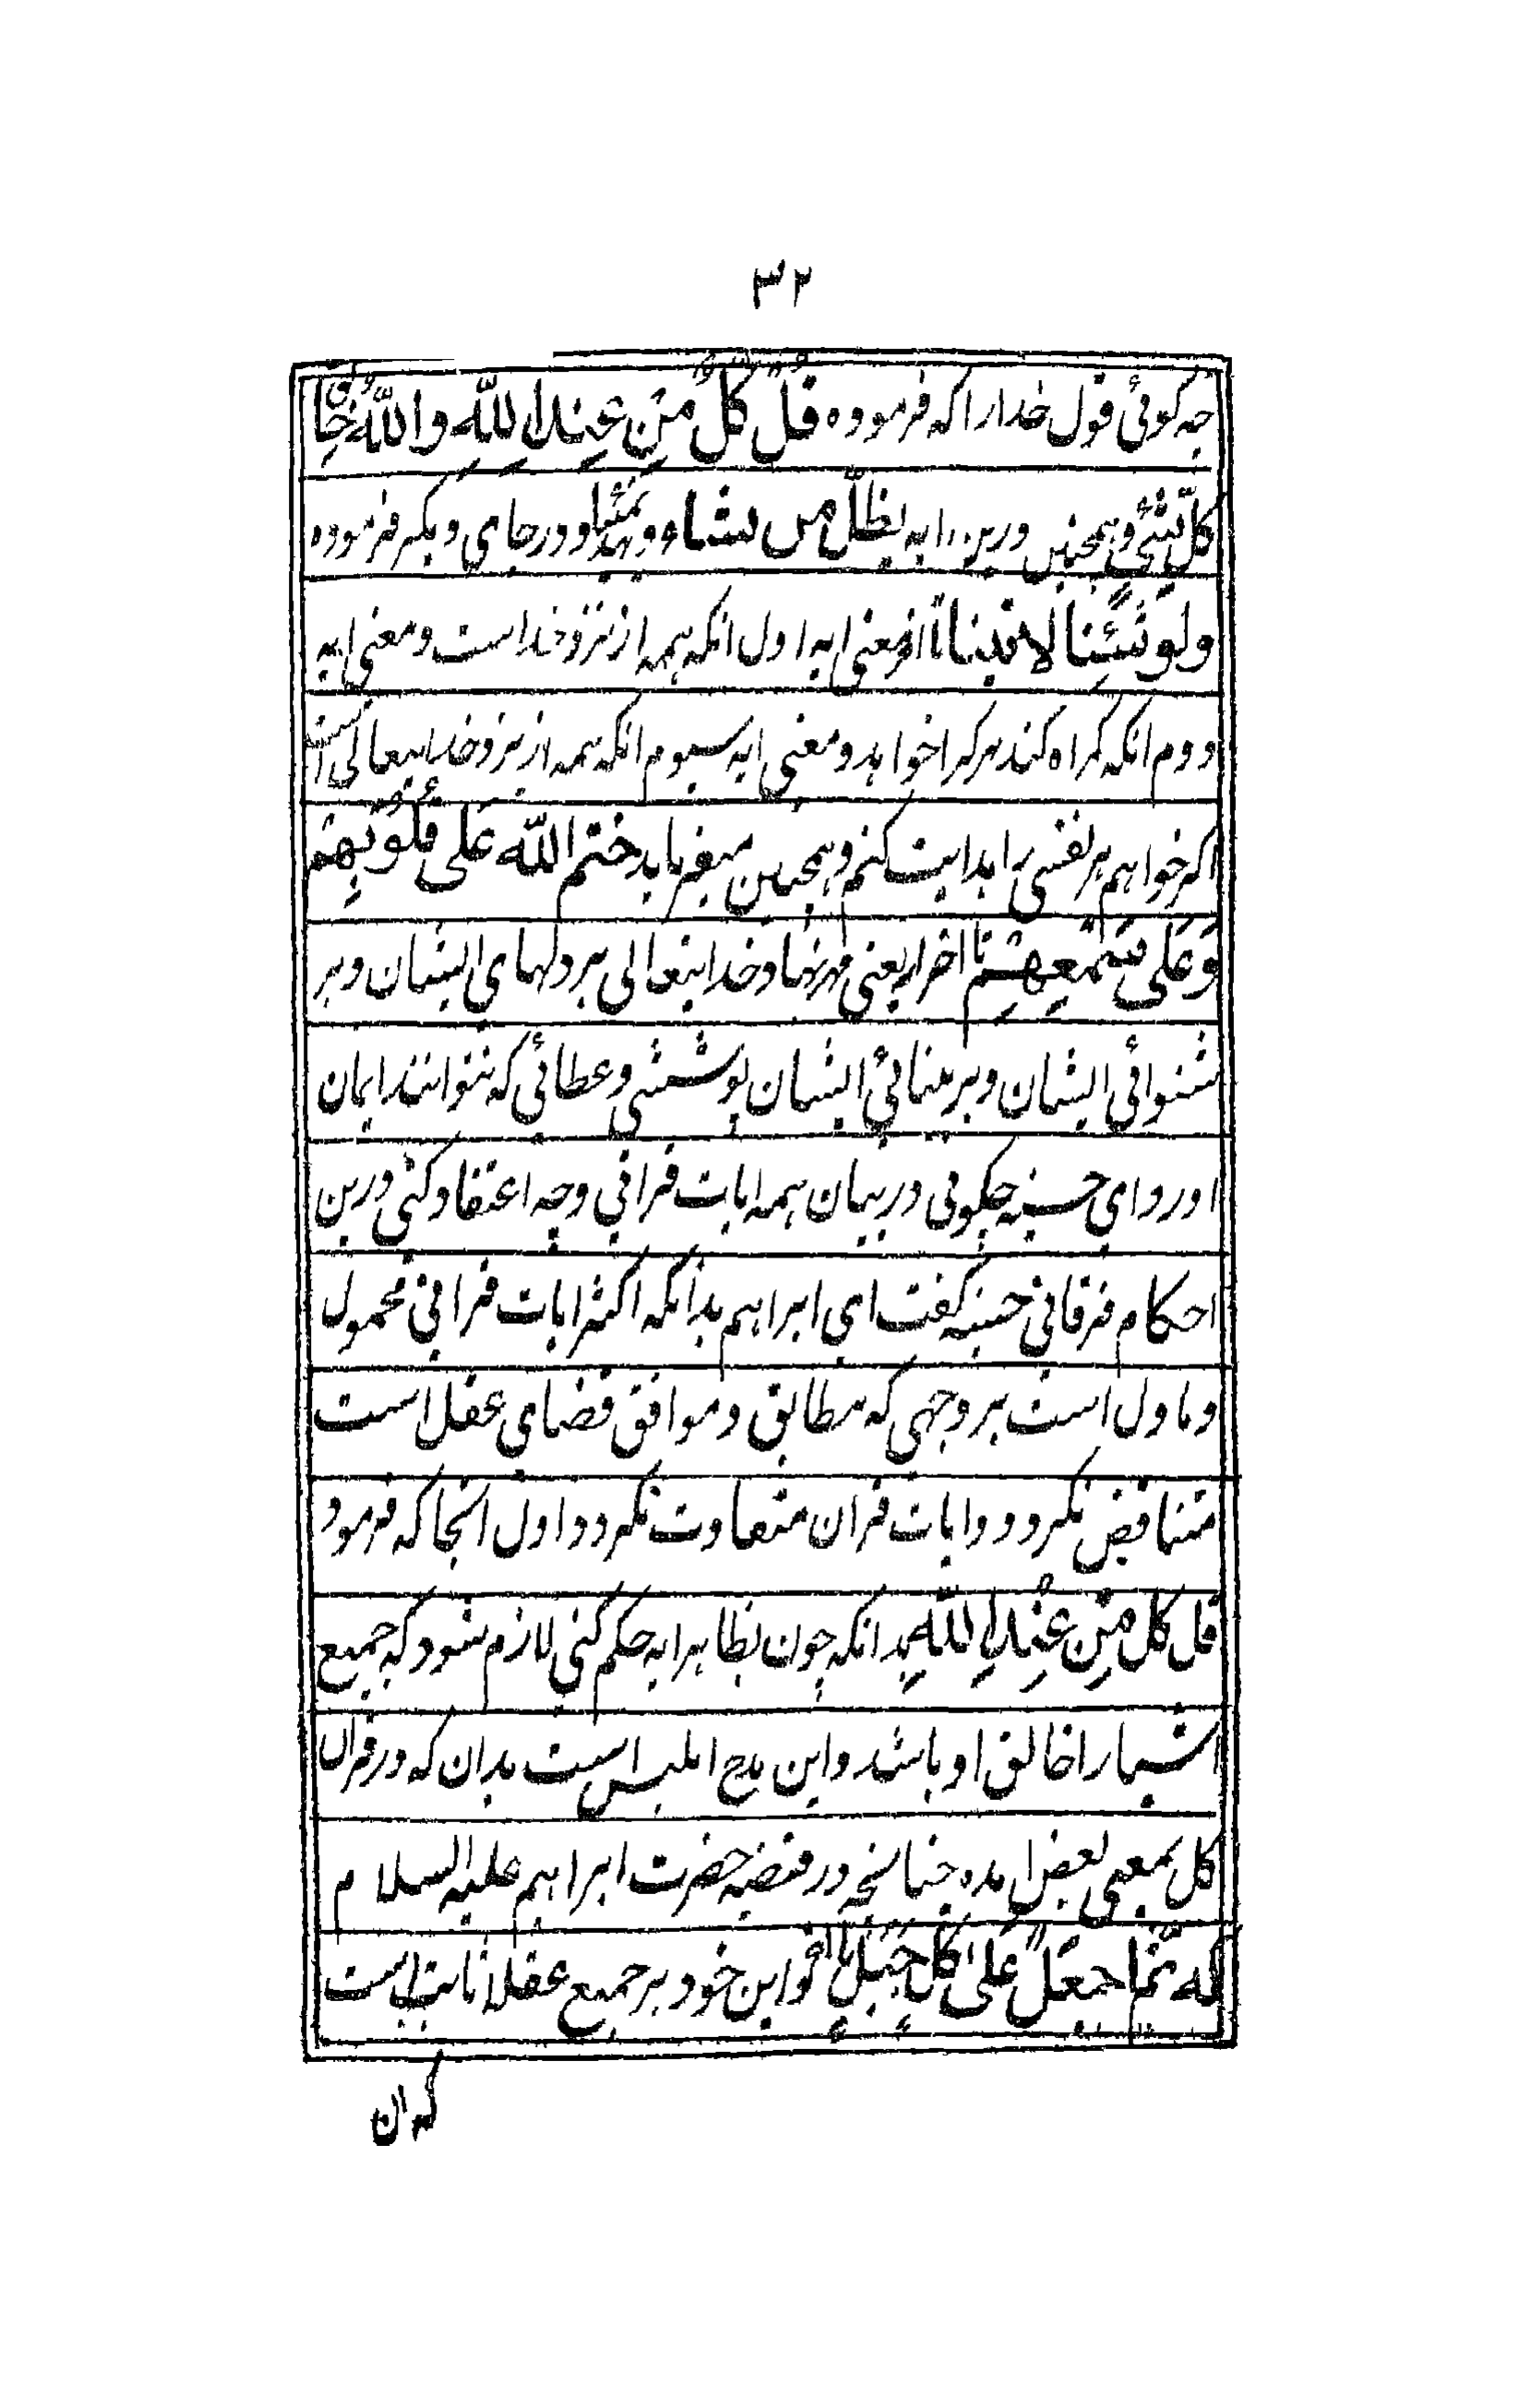 ۳۲
چه کوئی قول خدا را که فرموده قُلْ كُلٌّ مِّنْ عِندِ اللّٰهِ وَاللّٰهُ خَالِقُ
كُلِّ شَيْءٍ و همچنین درین ایه یضل من یشاء و یهدی و در جای دیکر فرموده
ولو شِئنا لاتینا تا اخر معنی ایه اول انکه همه از نزد خدا است و معنی ایه
دوم انکه کمراه کند هر کرا خواهد و معنی ایه سیوم انکه همه از نزد خدایتعالی است
اکر خواهم هر نفسی را هدایت کنم و همچنین میفرماید ختم اللّٰه عَلى قُلُوبِهِم
وَعَلى سَمْعِهِم تا اخر ایه یعنی مهر نهاد خدایتعالی بر دلهای ایشان و بر
شنوائی ایشان و بر بینائی ایشان پوششی و عطائی که نتوانند ایمان
اورد ای حسنیه چکوئی در بیان همه ایات قرانی و چه اعتقاد کنی درین
احکام فرقانی حسنیه کفت ای ابراهیم بدانکه اکثر ایات قرانی محمول
و ماول است بر وجهی که مطابق و موافق قضای عقل است
متناقض نکردد و ایات قران متفاوت نکردد اول انجا که فرمود
قل كل مِّنْ عِنْدِ اللّٰهِ بدانکه چون بظاهر ایه حکم کنی لازم شود که جمیع
اشیا را خالق او باشد و این مدح ابلیس است بدان که در قران
کل بمعنی بعض امده چنانچه در قضیه حضرت ابراهیم علیه السلام
که ثُمَّ اجعَل عَلى كُلِّ جَبَلٍ تا اخر و این خود بر جمیع عقلا ثابت است
که ان